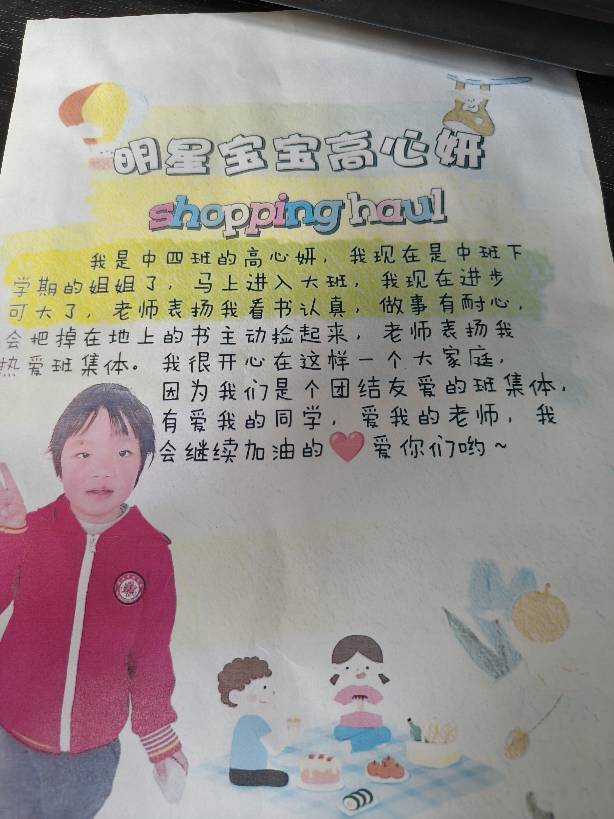 明星宝宝高心妍
shopping haul
我是中四班的高心妍，我现在是中班下
学期的姐姐了，马上进入大班，我现在进步
可大了，老师表扬我看书认真，做事有耐心，
会把掉在地上的书主动捡起来，老师表扬我
热爱班集体。我很开心在这样一个大家庭，
因为我们是个团结友爱的班集体，
有爱我的同学，爱我的老师，我
会继续加油的❤️爱你们哟～